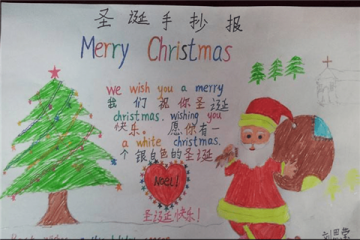 圣诞手抄报
Merry Christmas
we wish you a merry
我们祝你圣诞
christmas. wishing you
快乐。 愿你有一
a white christmas.
个银白色的圣诞
NOEL!
圣诞快乐!